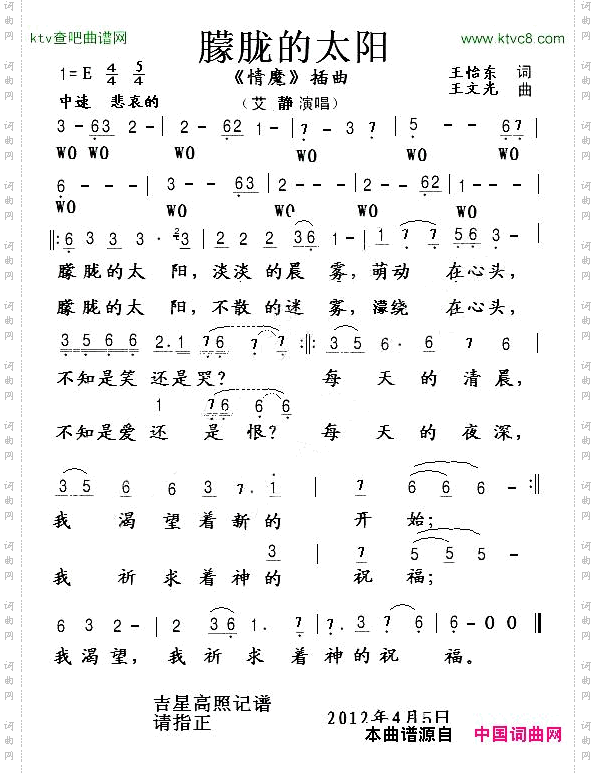 ktv查吧曲谱网
朦胧的太阳
www.ktvc8.com
1=E 4/4 5/4
《情魔》插曲
王怡东 词
王文光 曲
中速 悲哀的
（艾 静 演唱）
3 - 63 | 2 - - | 2 - 62 | 1 - - | 1 - 7 | 5 - - | 5 - 67 |
WO WO WO WO WO
6 - - | 3 - - | 3 - 63 | 2 - - | 2 - 62 | 1 - - | 1 - -
WO WO WO WO WO
‖: 6 3 3 3 · 2 3 | 2 2 2 36 | 1 - - | 1 7 7 | 56 3 - |
朦胧的太 阳，淡淡的晨 雾，萌动 在心头，
朦胧的太 阳，不散的迷 雾，濛绕 在心头，
3 5 6 6 2 . 1 76 7 7 :‖: 35 6 · 6 | 7 6
不知是笑 还是哭？ 每 天 的 清 晨，
1 76 6 6
不知是爱 还 是 恨？ 每 天 的 夜 深，
35 6 6 3 7 . 1 | 7 6 6 6 - :‖
我 渴 望 着 新 的 开 始；
3 7 5 5 5 -
我 祈 求 着 神 的 祝 福；
6 3 2 - | 7 . 2 36 | 1 . 7 7 | 7 5 6 | 6 - 0 0 ‖
我 渴 望， 我 祈 求 着 神 的 祝 福。
吉星高照记谱
请指正
2012年4月5日
本曲谱源自 中国词曲网
词曲网